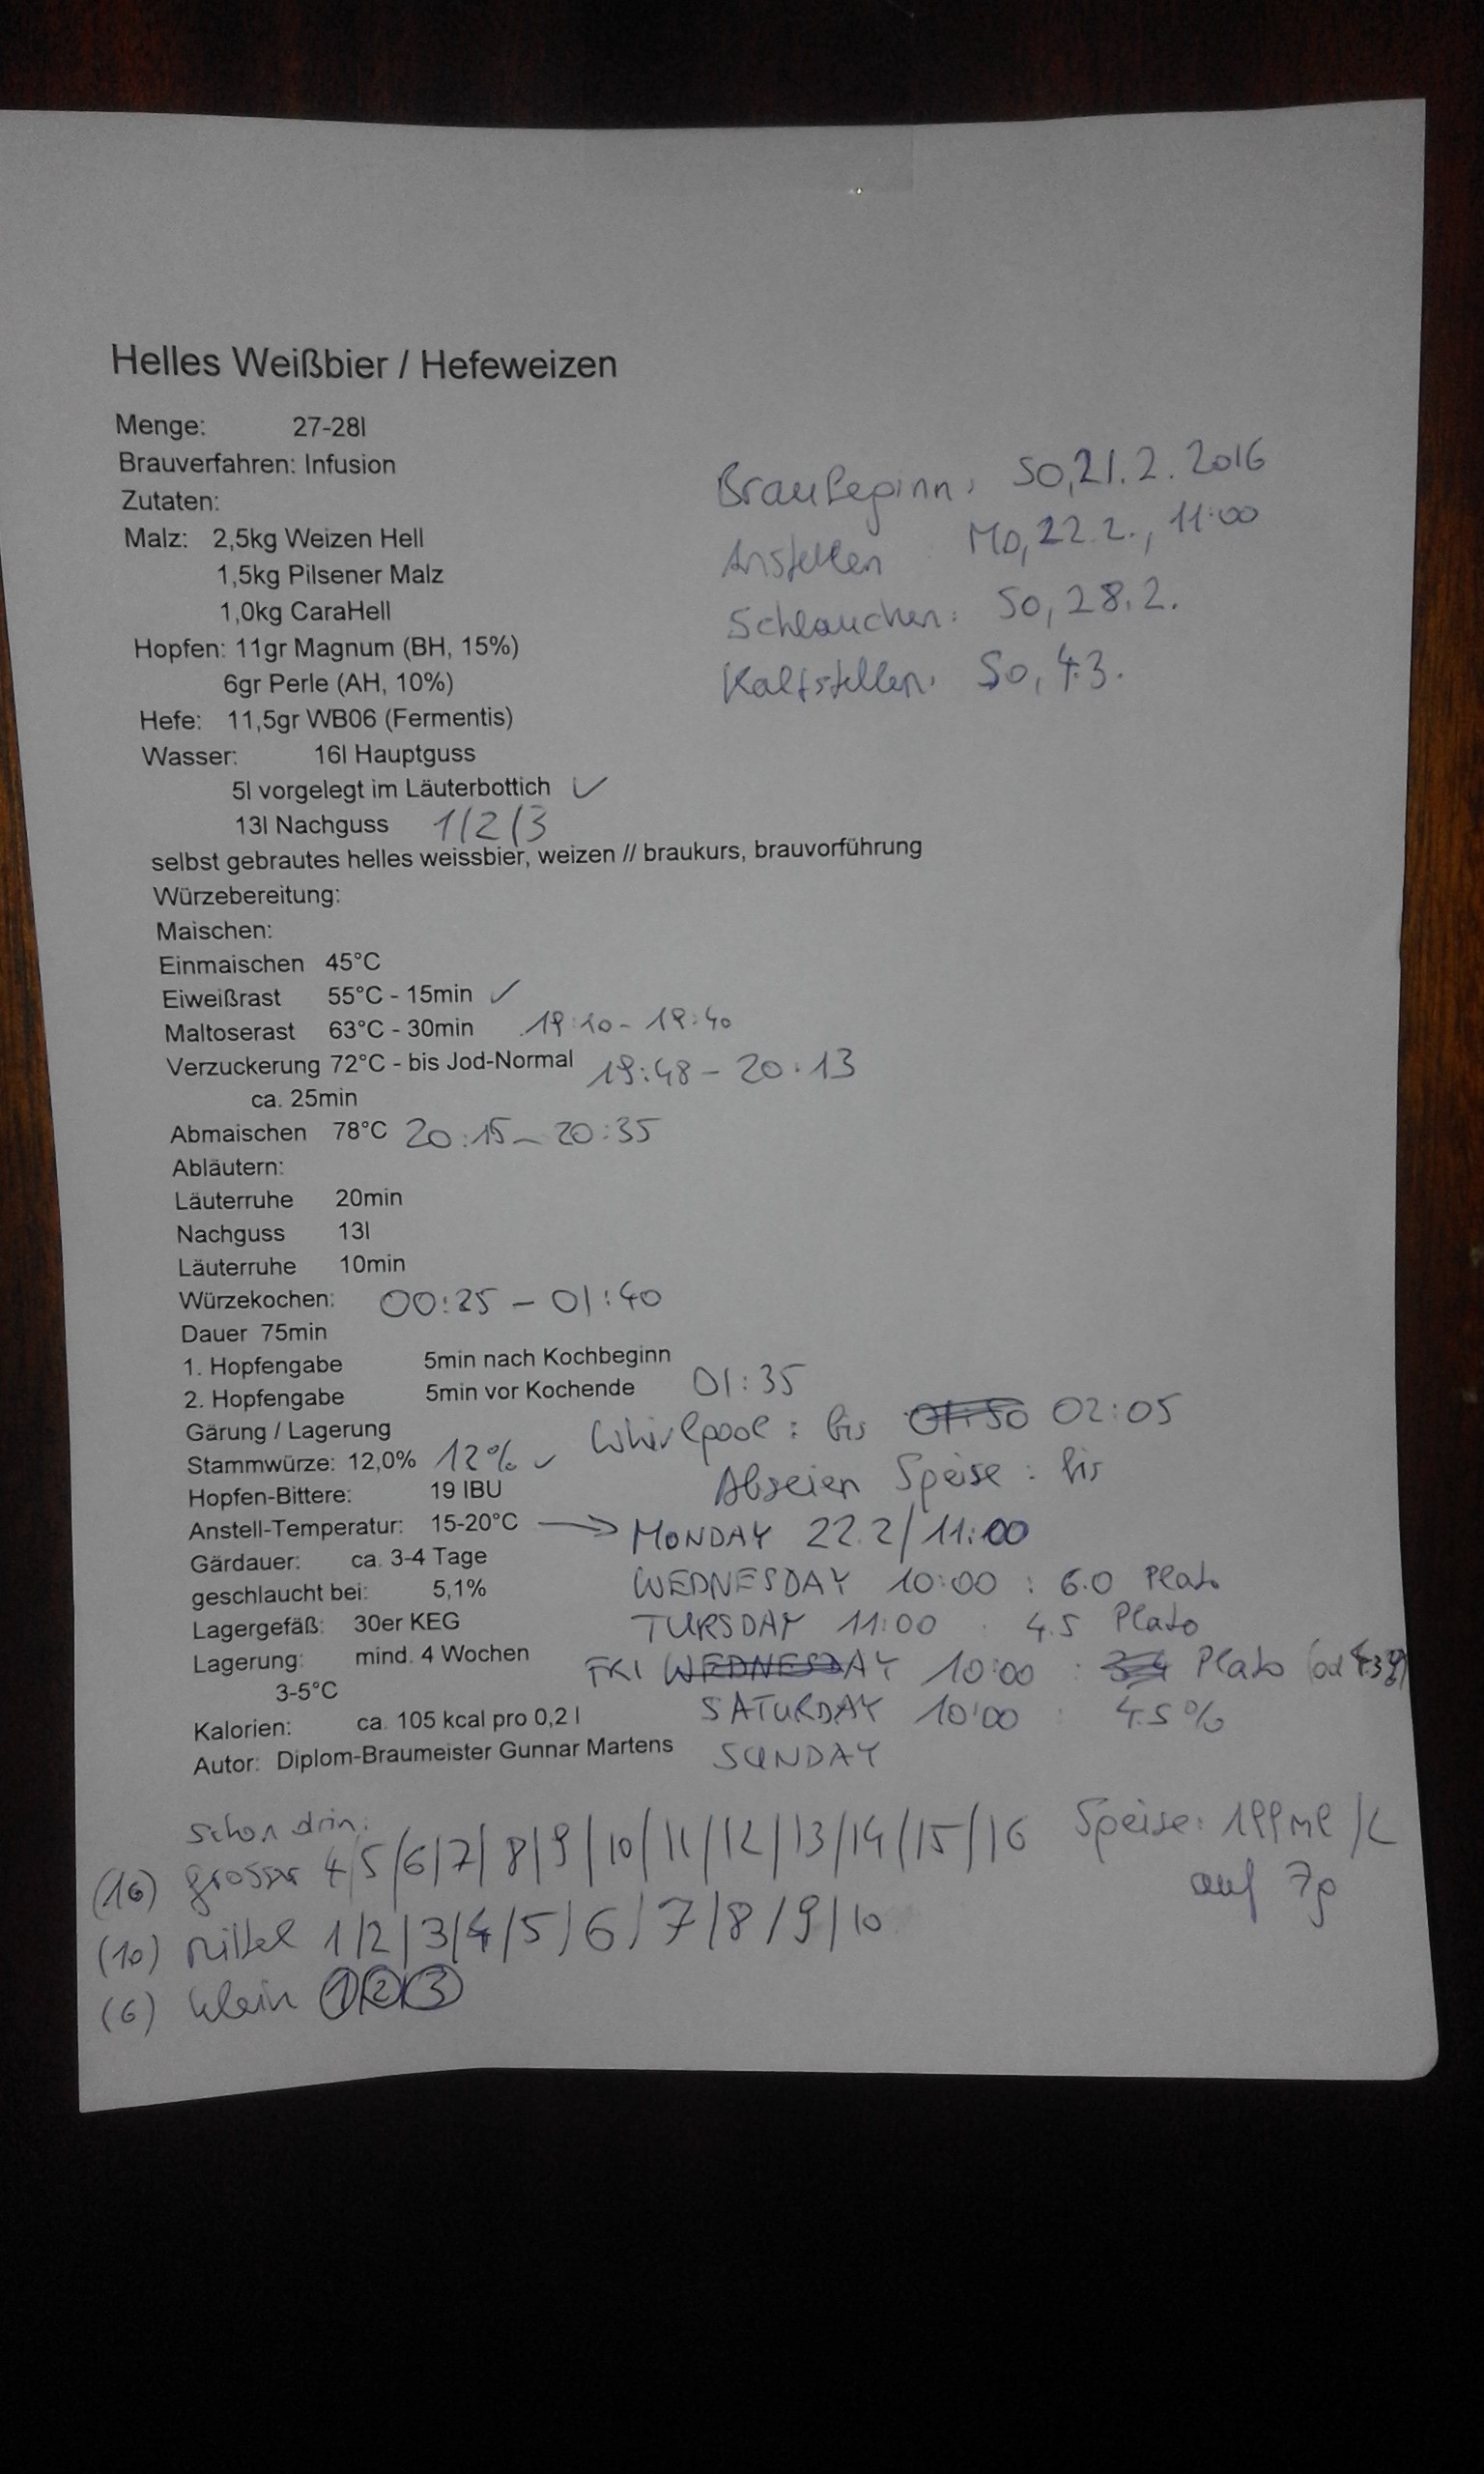 Helles Weißbier / Hefeweizen
Menge: 27-28l
Brauverfahren: Infusion
Braubeginn: SO, 21.2.2016
Zutaten:
Malz: 2,5kg Weizen Hell
Anstellen : Mo, 22.2., 11:00
1,5kg Pilsener Malz
1,0kg CaraHell
Schlauchen: So, 28.2.
Hopfen: 11gr Magnum (BH, 15%)
6gr Perle (AH, 10%)
Kaltstellen: So, 4.3.
Hefe: 11,5gr WB06 (Fermentis)
Wasser: 16l Hauptguss
5l vorgelegt im Läuterbottich ✓
13l Nachguss 1/2/3
selbst gebrautes helles weissbier, weizen // braukurs, brauvorführung
Würzebereitung:
Maischen:
Einmaischen 45°C
Eiweißrast 55°C - 15min ✓
Maltoserast 63°C - 30min 19:10 - 19:40
Verzuckerung 72°C - bis Jod-Normal 19:48 - 20:13
ca. 25min
Abmaischen 78°C 20:15 - 20:35
Abläutern:
Läuterruhe 20min
Nachguss 13l
Läuterruhe 10min
Würzekochen: 00:25 - 01:40
Dauer 75min
1. Hopfengabe 5min nach Kochbeginn
2. Hopfengabe 5min vor Kochende 01:35
Gärung / Lagerung
Whirlpool : bis 01:50 02:05
Stammwürze: 12,0% 12% ✓
Abseien Speise : bis
Hopfen-Bittere: 19 IBU
Anstell-Temperatur: 15-20°C → MONDAY 22.2/11:00
Gärdauer: ca. 3-4 Tage
WEDNESDAY 10:00 : 6.0 Plato
geschlaucht bei: 5,1%
TURSDAY 11:00 : 4.5 Plato
Lagergefäß: 30er KEG
Lagerung: mind. 4 Wochen
FRI WEDNESDAY 10:00 : Plato
3-5°C
SATURDAY 10:00 : 4.5%
Kalorien: ca. 105 kcal pro 0,2 l
Autor: Diplom-Braumeister Gunnar Martens
SUNDAY
schon drin:
(16) grosse 4/5/6/7/8/9/10/11/12/13/14/15/16
Speise: 199ml/L
auf 7g
(10) mittel 1/2/3/4/5/6/7/8/9/10
(6) klein 1 2 3